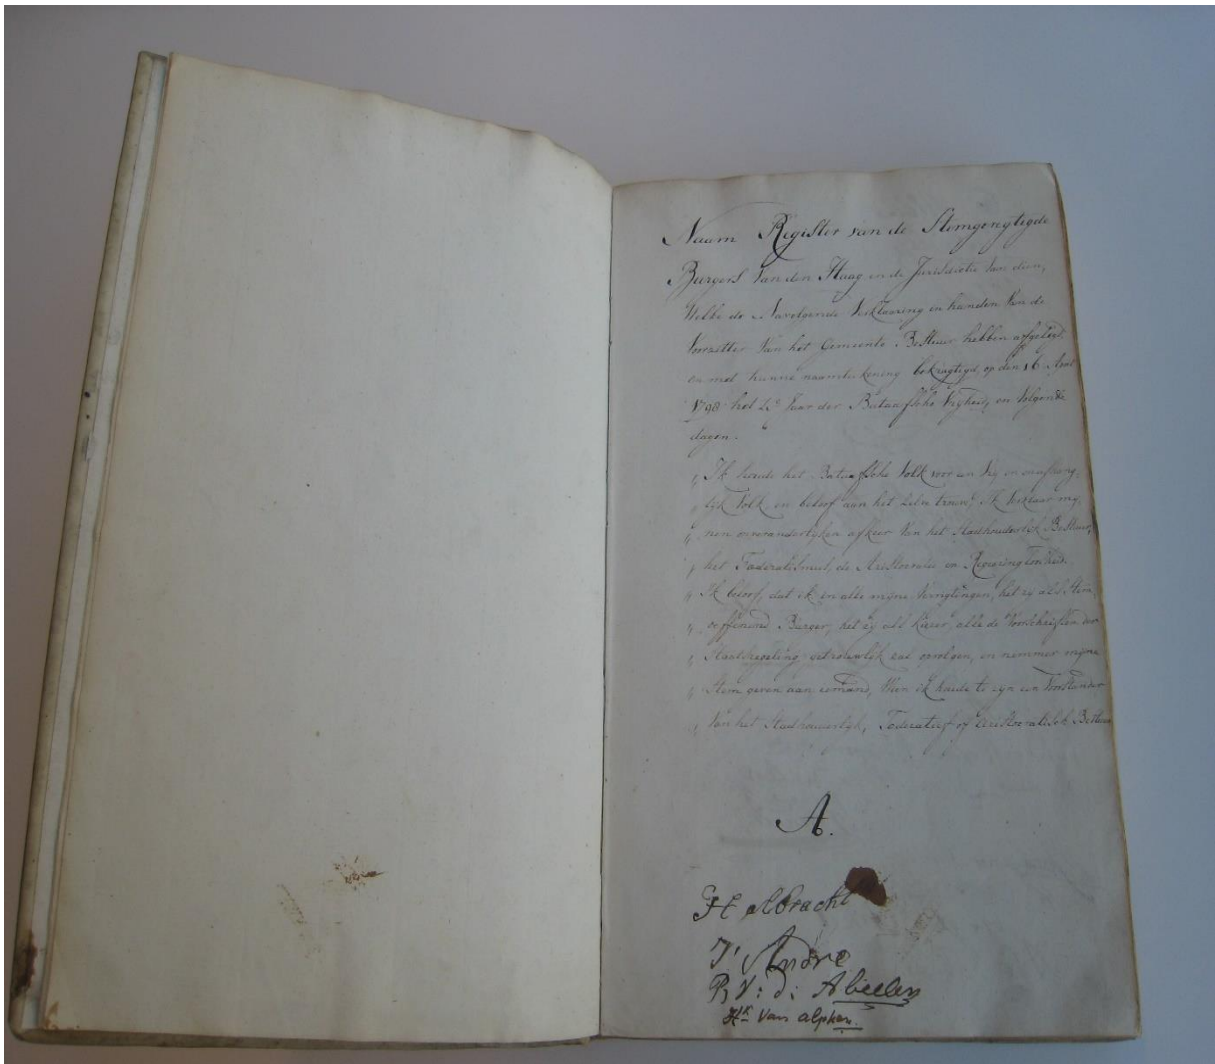 Naam Register van de Stemgeregtigde
Burgers van den Haag en de Jurisdictie van dien,
Welke de Navolgende Verklaaring in handen van de
Voorzitter van het Gemeente Bestuur hebben afgelegd,
en met hunne naamteekening bekragtigd, op den 16 April
1798 het 4e Jaar der Bataafsche Vryheid, en volgende
dagen.
„ Ik houde het Bataafsche Volk voor een Vry en onafhang-
„ lyk Volk en beloof aan het zelve trouw; Ik Verklaar my-
„ nen onveranderlyken afkeer van het Stadhouderlyk Bestuur,
„ het Foederalismus, de Aristocratie en Regeeringloosheid.
„ Ik beloof, dat ik in alle myne Verrigtingen, het zy als Stem-
„ oeffenend Burger, het zy als Kiezer, alle de Voorschriften der
„ Staatsregeling getrouwlyk zal opvolgen, en nimmer myne
„ Stem geven aan iemand, Wien ik houde te zyn een Voorstander
„ van het Stadhouderlyk, Foderatief of Aristocratisch Bestuur
A.
H albracht
J' Andre
P V: d: Abeelen
Hk van alphen.